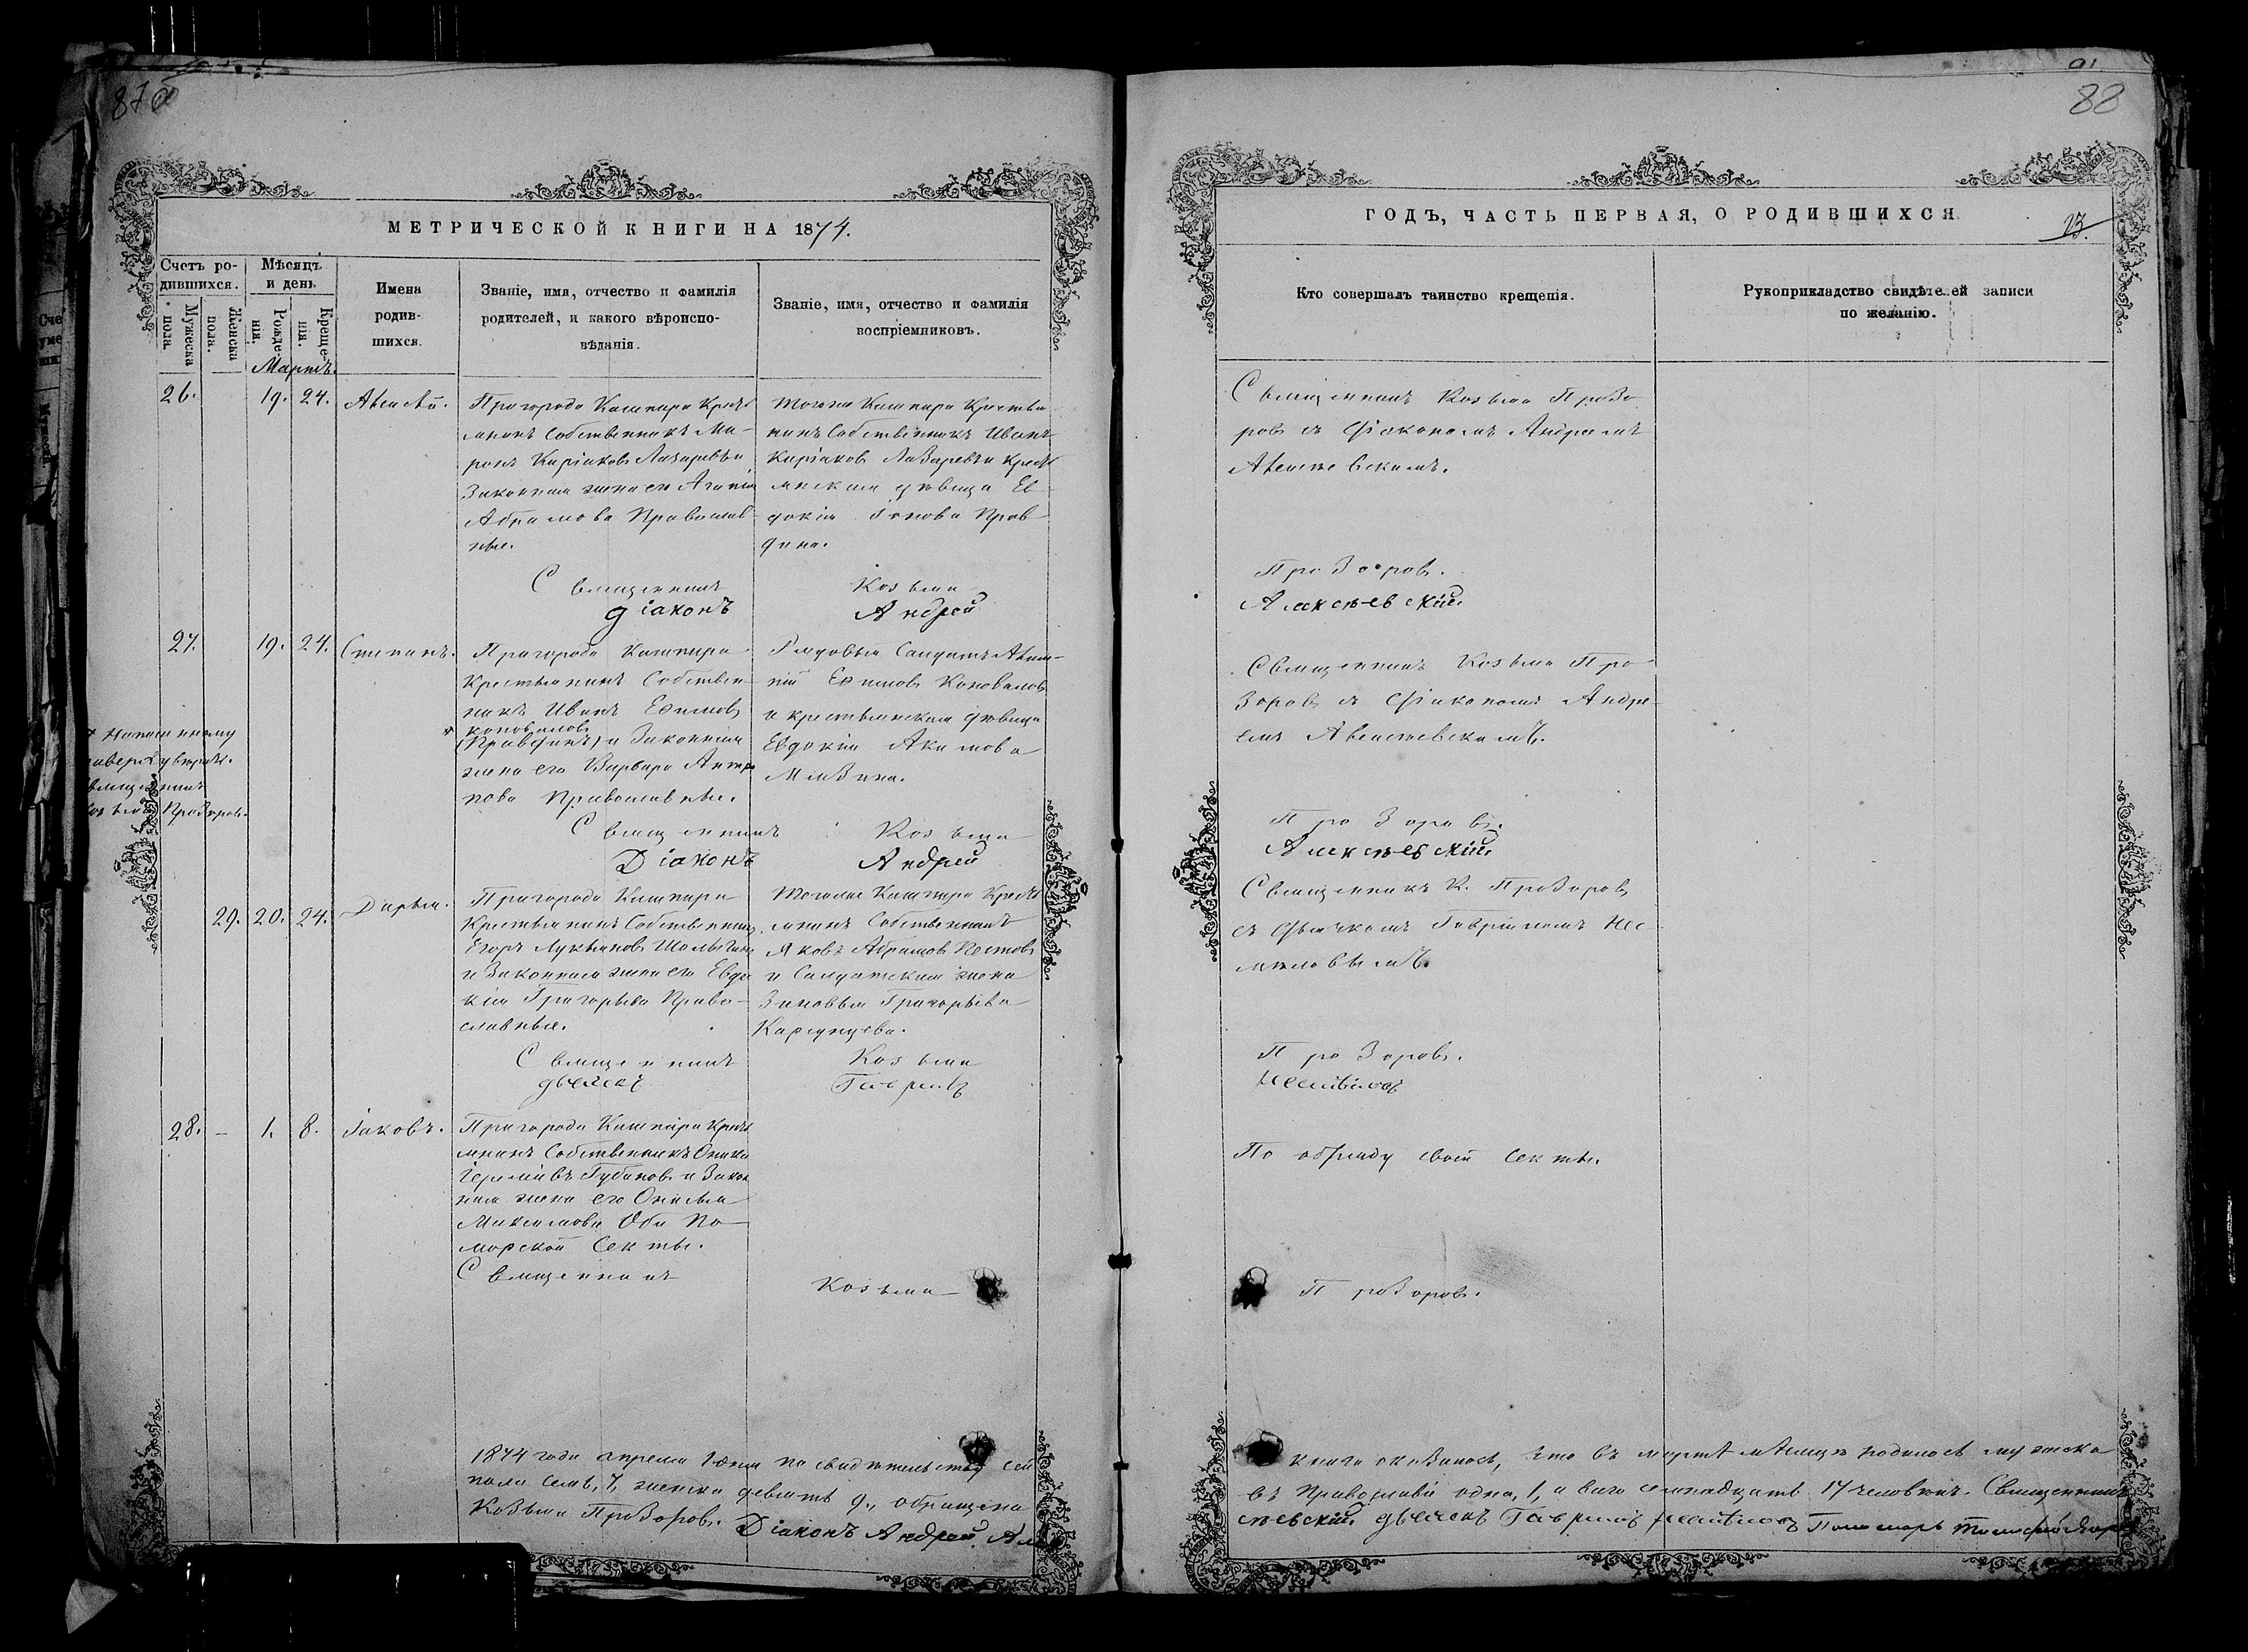 87об
88
МЕТРИЧЕСКОЙ КНИГИ НА 1874.
Счетъ ро-
дившихся.
Мужеска пола.
Женска пола.
Мѣсяцъ
и день
Рожденія.
Крещенія.
Мартъ.
Имена
родив-
шихся.
Званіе, имя, отчество и фамилія
родителей, и какого вѣроиспо-
вѣданія.
Званіе, имя, отчество и фамилія
воспріемниковъ.
26. 19. 24. Алексѣй.
Пригорода Кашпира Кресть
янинъ Собственникъ Ми-
ронъ Киріаковъ Лазаревъ и
Законная жена его Агапія
Абрамова Православ-
ные.
Тогоже Кашпира Крестья
нинъ Собственникъ Иванъ
Киріаковъ Лазаревъ и Кресть
янская дѣвица Ев-
докія Іонова Прав-
дина.
Священникъ Козьма
Діаконъ Андрей
27. 19. 24. Степанъ.
Пригорода Кашпира
Крестьянинъ Собствен-
никъ Иванъ Ефимовъ
Коноваловъ
(Правдинъ) и Законная
жена его Варвара Анти
пова Православные.
Рядовый Солдатъ
Ефимовъ Коноваловъ
и крестьянская дѣвица
Евдокія Акимова
Священникъ Козьма
Діаконъ Андрей
священникъ
Козьма Прозоровъ.
29. 20. 24. Дарья.
Пригорода Кашпира
Крестьянинъ Собственникъ
Егоръ Лукьяновъ
и Законная жена его Евдо
кія Григорьева Право-
славные.
Тогоже Кашпира Кресть
янинъ Собственникъ
Яковъ Абрамовъ Пестовъ
и Солдатская жена
Зиновья Григорьева
Священникъ Козьма
дьячекъ Гавріилъ
28. - 1. 8. Іаковъ.
Пригорода Кашпира Кресть
янинъ Собственникъ
Іереміевъ Губановъ и Закон
ная жена его
Максимова Оба По-
морской Секты.
Священникъ Козьма
1874 года апрѣля 1 дня по свидѣтельству сей
пола семь, 7, женска девять 9, обращена
Козьма Прозоровъ. Діаконъ Андрей Алек
ГОДЪ, ЧАСТЬ ПЕРВАЯ, О РОДИВШИХСЯ
Кто совершалъ таинство крещенія.
Рукоприкладство свидѣтелей записи
по желанію.
Священникъ Козьма Прозо
ровъ съ Діакономъ Андреемъ
Алексѣевскимъ.
Прозоровъ.
Алексѣевскій.
Священникъ Козьма Про-
зоровъ съ Діакономъ Андре-
емъ Алексѣевскимъ.
Прозоровъ.
Алексѣевскій.
Священникъ К. Прозоровъ
съ Дьячкомъ Гавріиломъ Нес-
мѣловымъ.
Прозоровъ.
Несмѣловъ
По обряду своей Секты.
Прозоровъ.
книги оказалось, что въ мартѣ мѣсяцѣ родилось мужска
въ Православіе одна, 1, а всего семнадцать 17 человѣкъ. Священникъ
сѣевскій дьячекъ Гавріилъ Несмѣловъ Пономарь